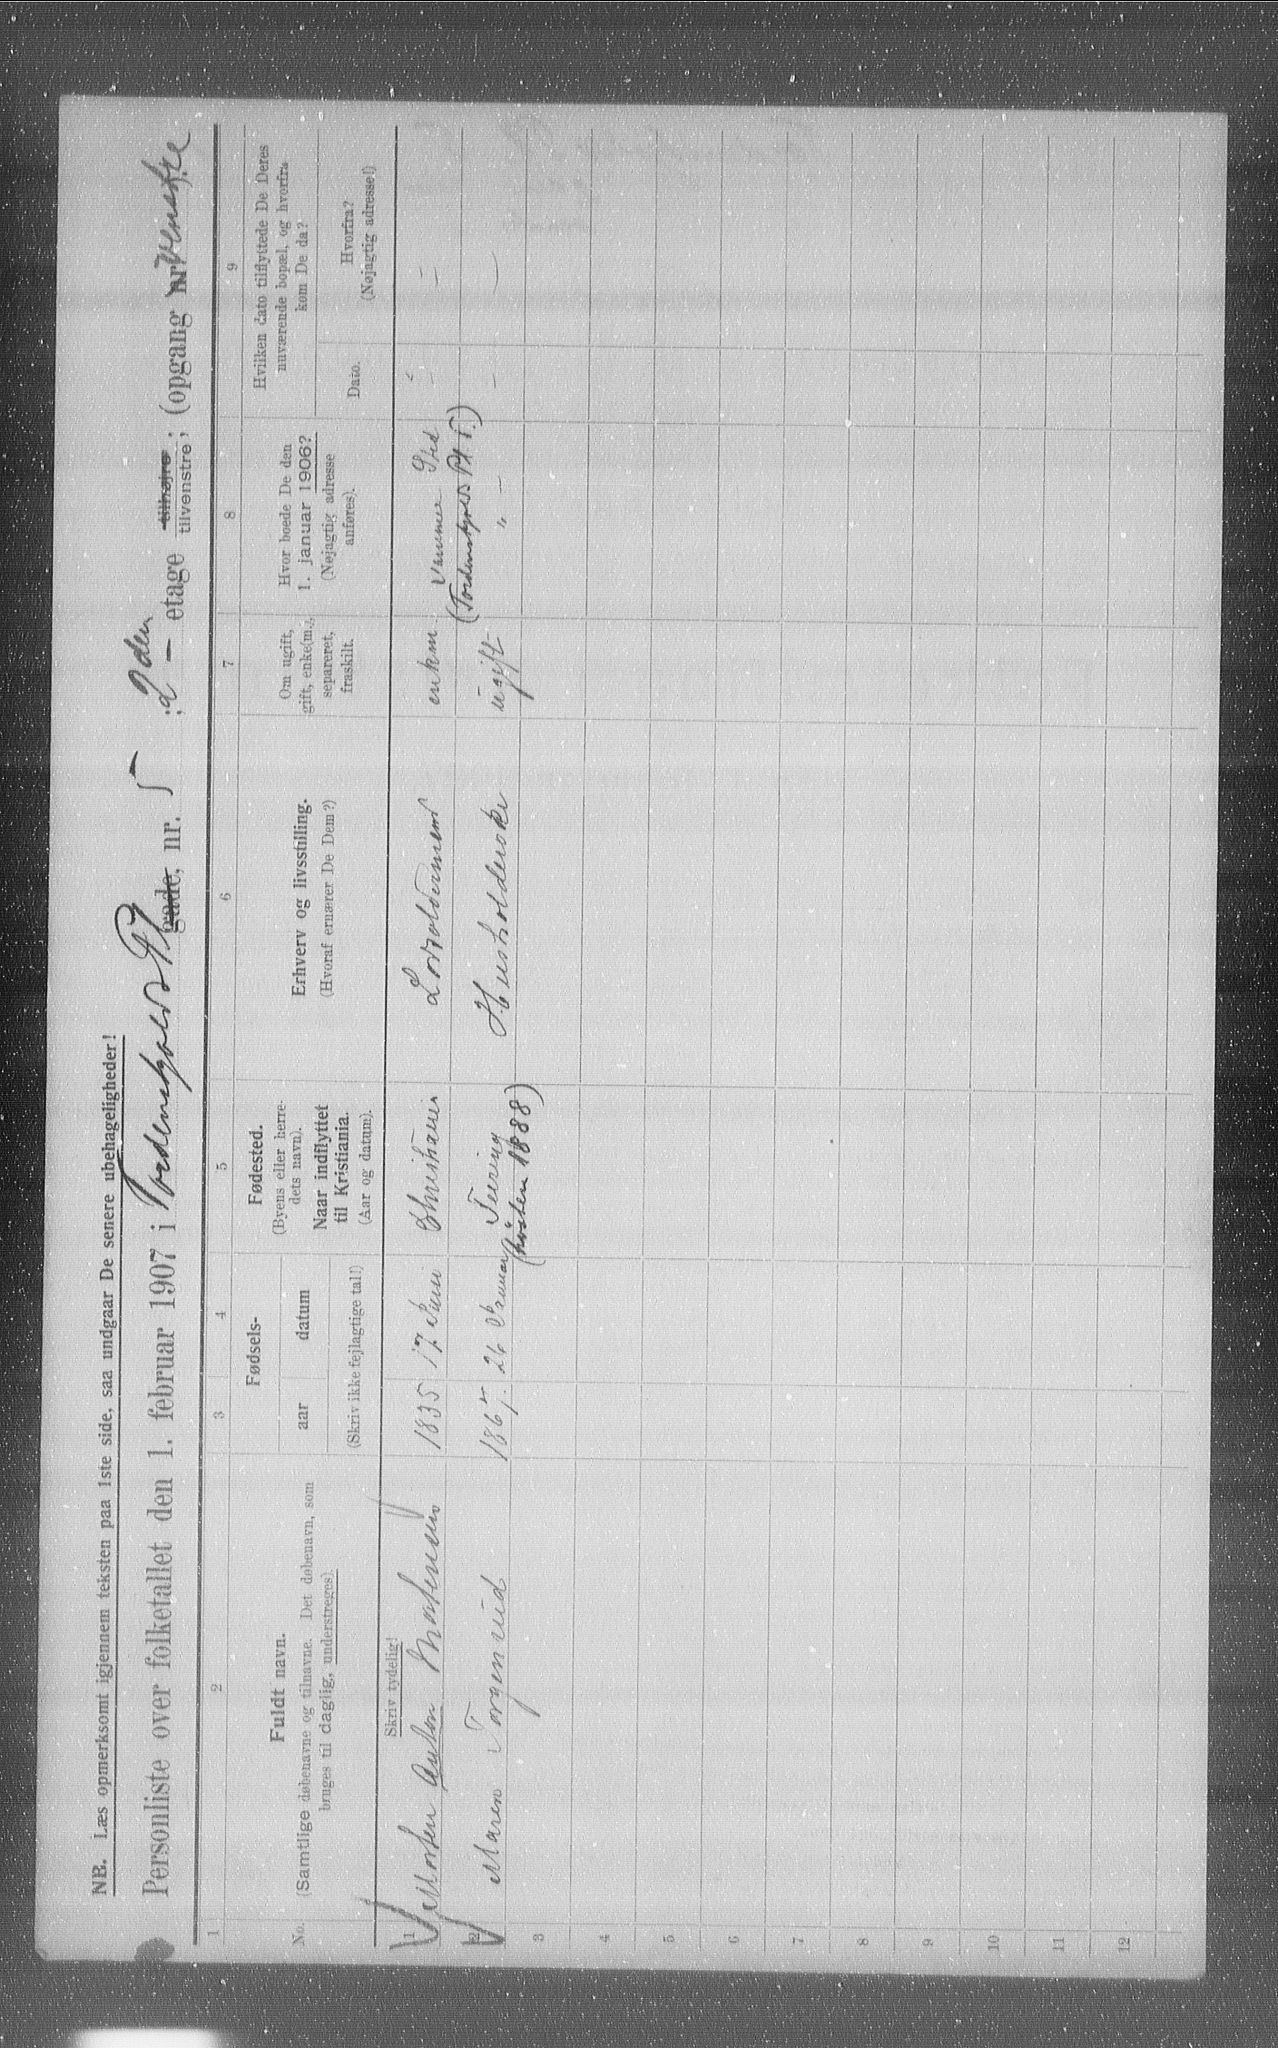 NB. Læs opmerksomt igjennem teksten paa 1ste side, saa undgaar De senere ubehageligheder!
Personliste over folketallet den 1. februar 1907 i Tordenskjolds Pl gade, nr. 5, 2den — etage tilhøjre tilvenstre; (opgang nr Venstre
1 2 3 4 5 6 7 8 9
No.
Fuldt navn.
(Samtlige døbenavne og tilnavne. Det døbenavn, som
bruges til daglig, understreges).
Fødsels-
aar datum
(Skriv ikke fejlagtige tal!)
Fødested.
(Byens eller herre-
dets navn).
Naar indflyttet
til Kristiania.
(Aar og datum).
Erhverv og livsstilling.
(Hvoraf ernærer De Dem?)
Om ugift,
gift, enke(m.),
separeret,
fraskilt.
Hvor boede De den
1. januar 1906?
(Nøjagtig adresse
anføres).
Hvilken dato tilflyttede De Deres
nuværende bopæl, og hvorfra
kom De da?
Dato.
Hvorfra?
(Nøjagtig adresse!)
Skriv tydelig!
1 Morten Anton Mortensen 1835 17 Juni Christiania enkm. samme Sted
(Tordenskjolds Pl 5.)
2 Maren Torgersrud 1865 26 Januar Husholderske ugift " — — —
(høsten 1888)
3
4
5
6
7
8
9
10
11
12